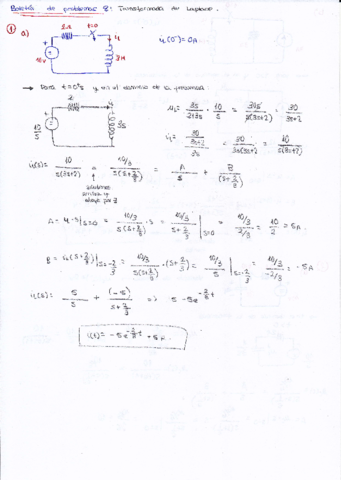 Boletín de problemas 8: Transformada de Laplace.
① a)
2Ω t=0 i₁
10V 3H
i₁(0⁻) = 0A
→ Para t=0⁺s y en el dominio de la frecuencia
2 i₁
10/s 3s
u₁ = 3s/(2+3s) · 10/s = 30s/(s(3s+2)) = 30/(3s+2)
i₁ = (30/(3s+2))/3s = 30/(3s(3s+2)) = 10/(s(3s+2))
i₁(s) = 10/(s(3s+2)) = (10/3)/(s(s+2/3)) = A/s + B/(s+2/3)
A = i₁·s|s=0 = (10/3)/(s(s+2/3)) · s = (10/3)/(s+2/3)|s=0 = (10/3)/(2/3) = 10/2 = 5A
B = i₁(s+2/3)|s=-2/3 = (10/3)/(s(s+2/3)) · (s+2/3) = (10/3)/s|s=-2/3 = (10/3)/(-2/3) = -5A
i₁(s) = 5/s + (-5)/(s+2/3) => 5 - 5e^(-2/3 t)
i₁(t) = -5e^(-2/3 t) + 5A.